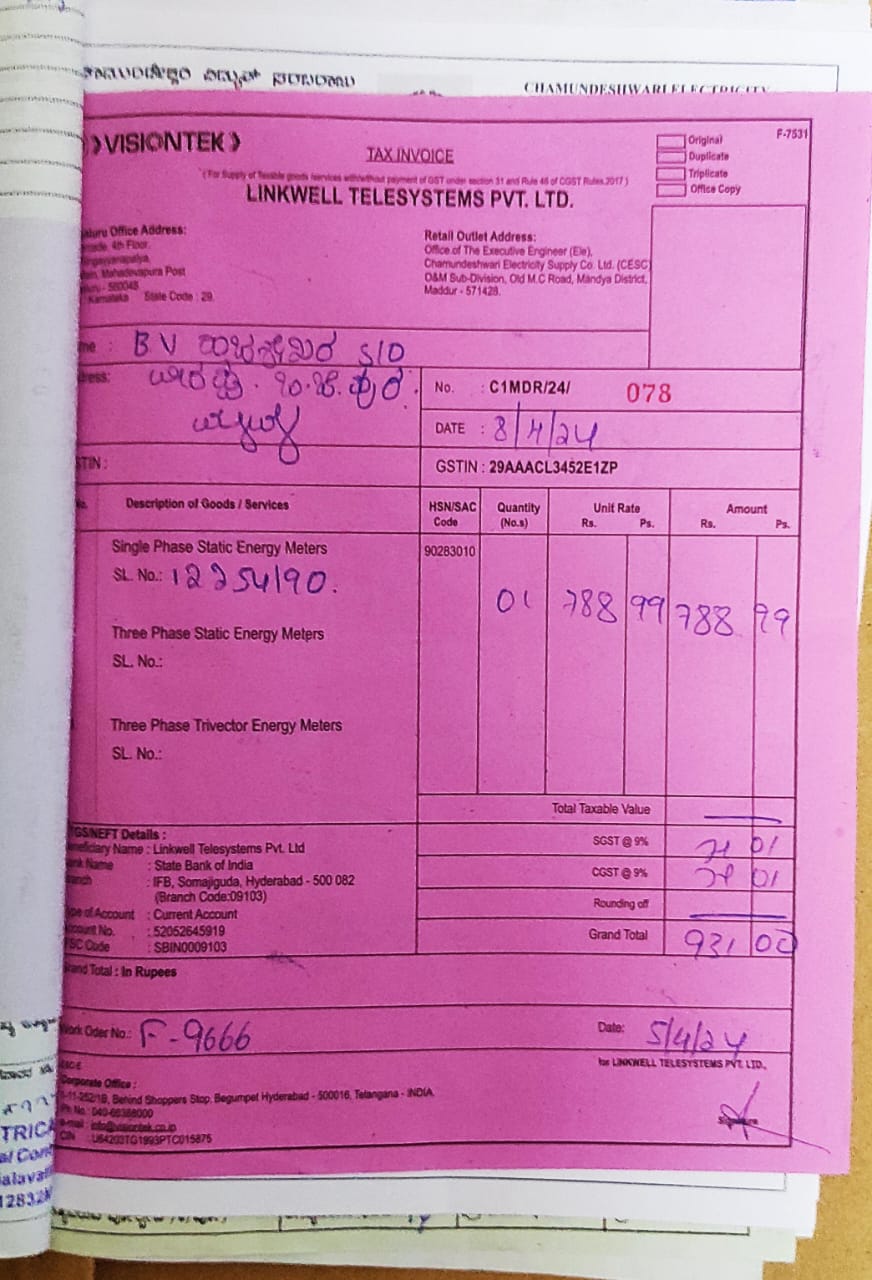 CHAMUNDESHWARI ELECTRICITY
VISIONTEK
TAX INVOICE
Original
Duplicate
Triplicate
Office Copy
F-7531
(For Supply of Taxable goods /services with/without payment of GST under section 31 and Rule 46 of CGST Rules,2017)
LINKWELL TELESYSTEMS PVT. LTD.
Office Address:
4th Floor,
Mahadevapura Post
- 560048
Karnataka State Code : 29.
Retail Outlet Address:
Office of The Executive Engineer (Ele),
Chamundeshwari Electricity Supply Co. Ltd. (CESC)
O&M Sub-Division, Old M.C Road, Mandya District,
Maddur - 571428.
: B V S/O
No. : C1MDR/24/ 078
DATE : 8/4/24
GSTIN : 29AAACL3452E1ZP
Description of Goods / Services
HSN/SAC Code
Quantity (No.s)
Unit Rate Rs. Ps.
Amount Rs. Ps.
Single Phase Static Energy Meters
90283010
SL. No.: 12254190.
01 788 99 788 99
Three Phase Static Energy Meters
SL. No.:
Three Phase Trivector Energy Meters
SL. No.:
Total Taxable Value
Details :
Name : Linkwell Telesystems Pvt. Ltd
SGST @ 9% 71 01
Name : State Bank of India
: IFB, Somajiguda, Hyderabad - 500 082
(Branch Code:09103)
CGST @ 9% 71 01
of Account : Current Account
Rounding off
No. : 52052645919
Code : SBIN0009103
Grand Total 931 00
Total : In Rupees
Oder No.: F-9666
Date: 5/4/24
for LINKWELL TELESYSTEMS PVT. LTD.,
Corporate Office :
Behind Shoppers Stop, Begumpet Hyderabad - 500016, Telangana - INDIA.
Ph No.: 040-66388000
info@visiontek.co.in
CIN : U64203TG1993PTC015875